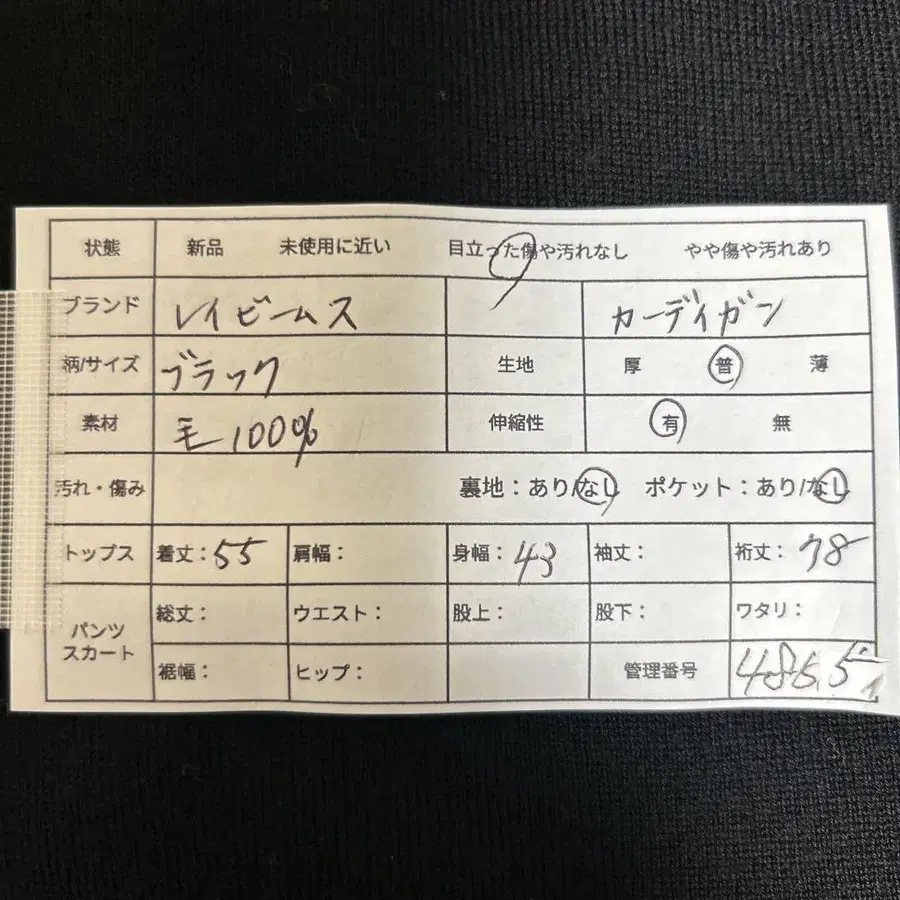 状態 新品 未使用に近い 目立った傷や汚れなし やや傷や汚れあり
ブランド レイビームス カーディガン
柄/サイズ ブラック 生地 厚 普 薄
素材 毛100% 伸縮性 有 無
汚れ・傷み 裏地:あり/なし ポケット:あり/なし
トップス 着丈:55 肩幅: 身幅:43 袖丈: 裄丈:78
パンツ スカート 総丈: ウエスト: 股上: 股下: ワタリ:
裾幅: ヒップ: 管理番号